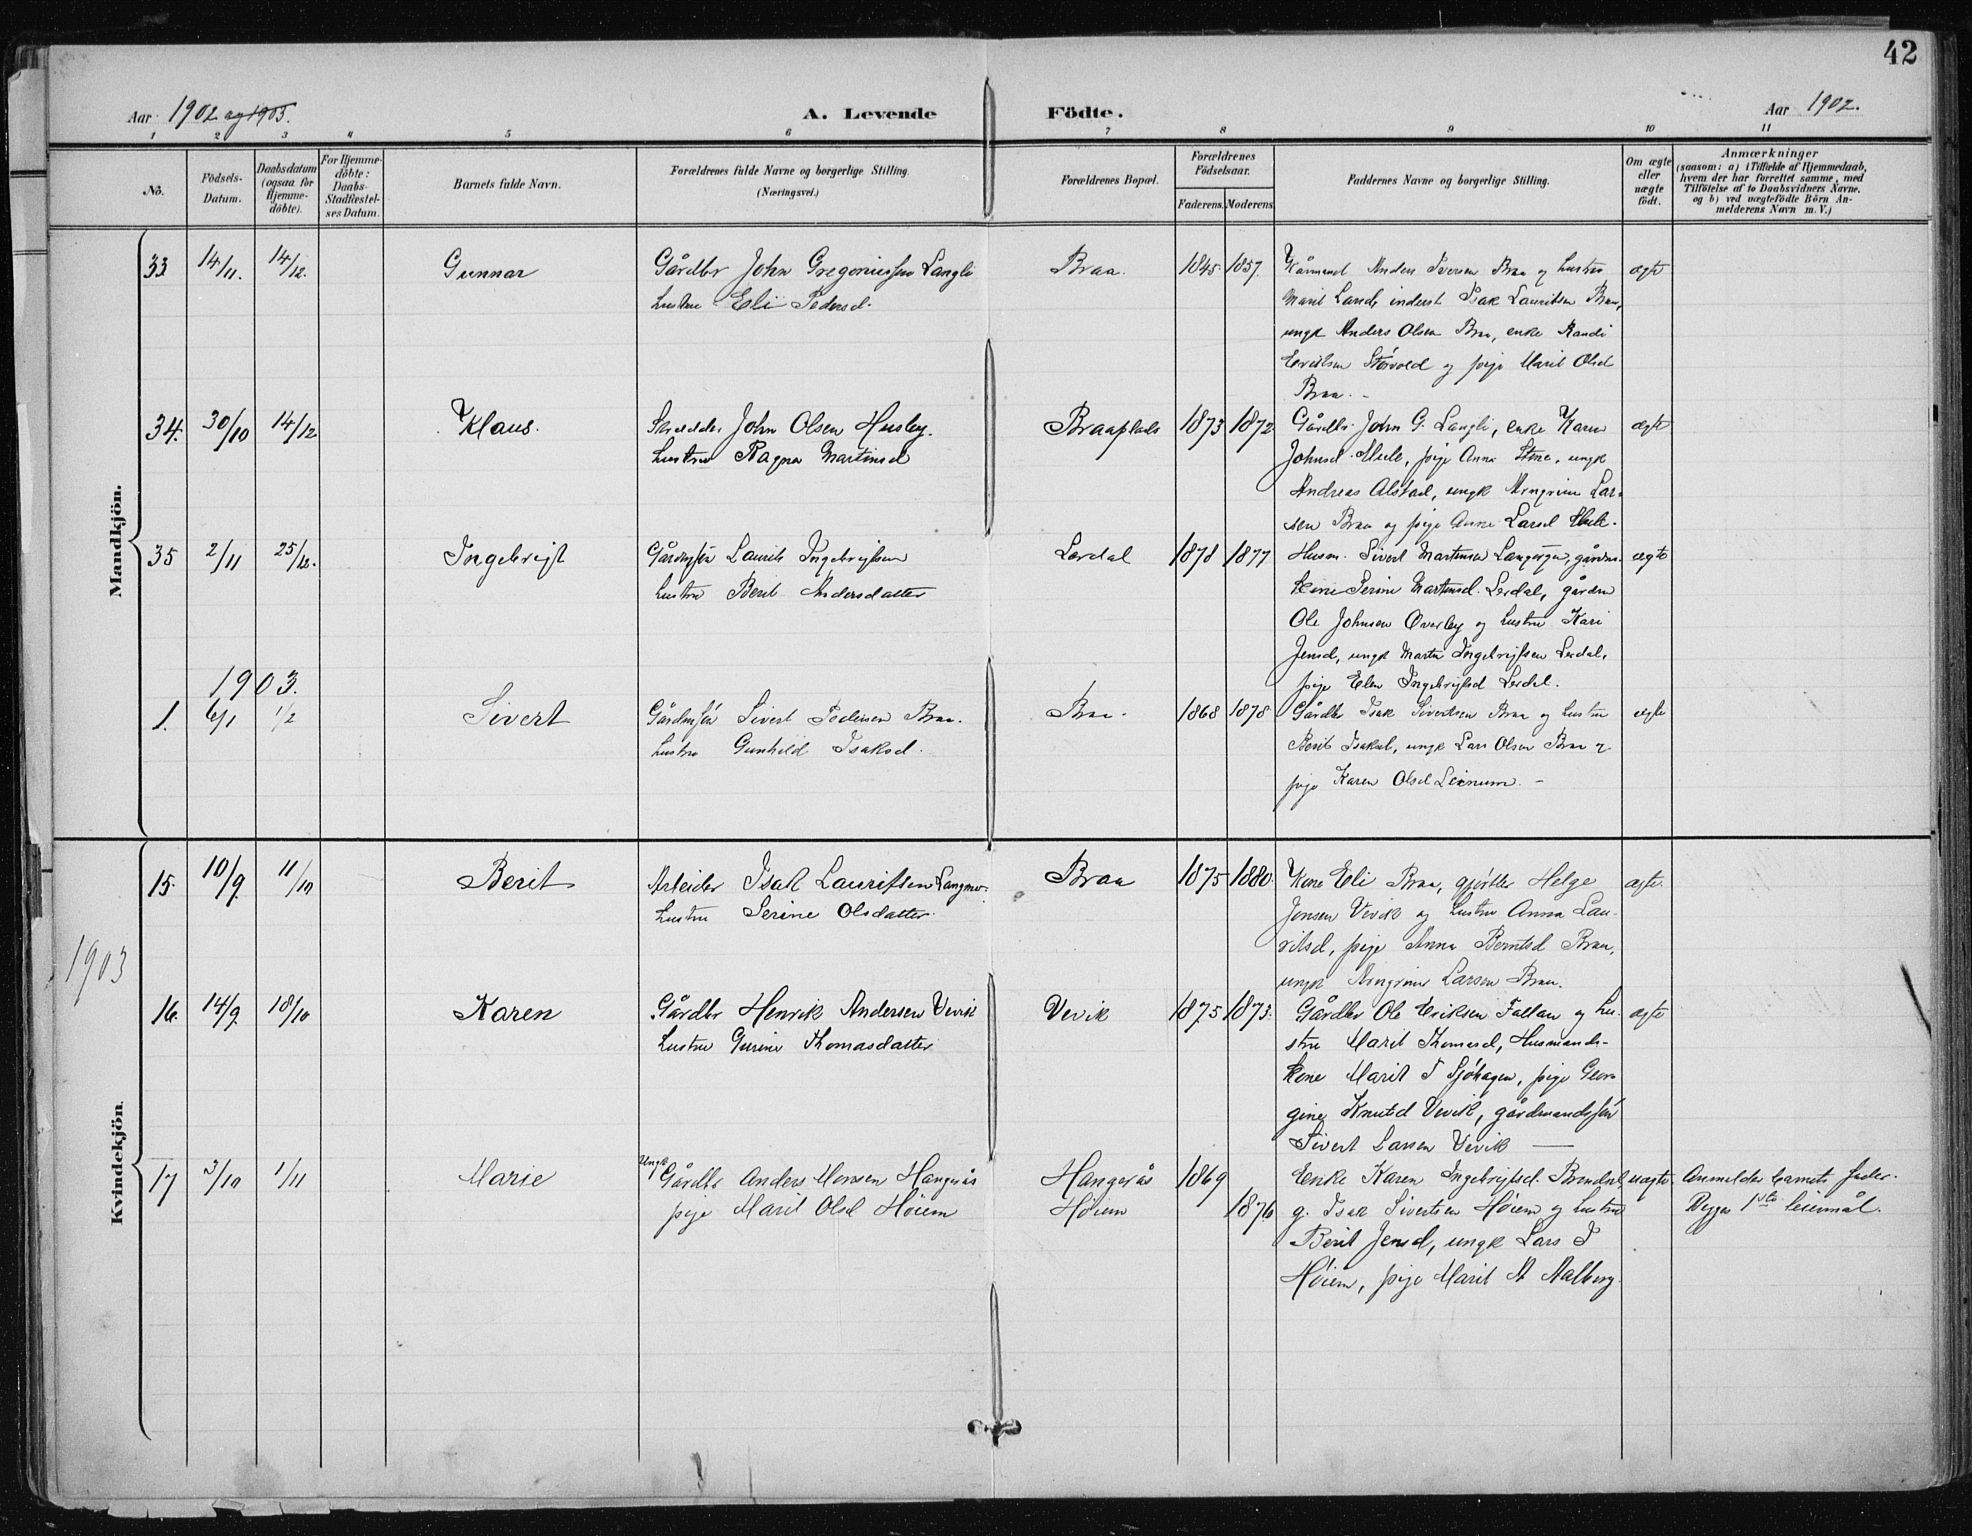 42
Aar 1902 og 1903.
A. Levende Födte.
Aar 1902.
1 2 3 4 5 6 7 8 9 10 11
No.
Födsels-Datum.
Daabsdatum (ogsaa for Hjemme-döbte).
For Hjemme-döbte: Daabs-Stadfæstel-ses Datum.
Barnets fulde Navn.
Forældrenes fulde Navne og borgerlige Stilling.
(Næringsvei.)
Forældrenes Bopæl.
Forældrenes Födselsaar.
Faderens. Moderens.
Faddernes Navne og borgerlige Stilling.
Om ægte eller uægte födt.
Anmærkninger
(saasom: a) i Tilfælde af Hjemmedaab,
hvem der har forrettet samme, med
Tilföielse af to Daabsvidners Navne,
og b) ved uægtefödte Börn An-
melderens Navn m. V.)
Mandkjön.
33 14/11. 14/12. Gunnar Gårdbr John Gregoriussen Langli Braa. 1845 1857. Kårmand Anders Iversen Braa og hustru ægte
hustru Eli Pedersd.
Marit Larsd, inderst Isak Lauritsen Braa,
ungk Anders Olsen Braa, enke Randi
og pige Marit Olsd
Braa.
34. 30/10 14/12 Klaus. Skrædder John Olsen Husby. Braaplads 1873 1872 Gårdbr John G. Langli, enke Karen ægte
hustru Ragna Martinsd
Johnsd, pige Anna Stene, ungk
Andreas Alstad, ungk Arngrim Lar-
sen Braa og pige Anne Larsd
35 2/11 25/12. Ingebrigt Gårdmsøn Laurits Ingebrigtsen Lerdal 1878 1877 Husm. Sivert Martinsen gårdm- ægte
hustru Berit Andersdatter
kone Serine Martinsd. Lerdal, gårdm
Ole Johnsen Øverby og hustru Kari
Jensd, ungk Martin Ingebrigtsen Lerdal,
pige Elen Ingebrigtsd Lerdal.
1903.
1. 6/1 1/2 Sivert Gårdmsøn Sivert Pedersen Braa. Braa. 1868 1878 Gårdbr Isak Sivertsen Braa og hustru ægte
hustru Gunhild Isaksd.
Berit Isaksd, ungk Lars Olsen Braa og
pige Karen Olsd Leinum.
Kvindekjön.
1903
15. 10/9. 11/10 Berit Arbeider Isak Lauritsen Langmo. Braa 1875 1880. Kone Eli Braa, gjørtler Helge ægte.
hustru Serine Olsdatter.
Jonsen Vevik og hustru Anna Lau-
ritsd, pige Anna Berntsd Braa,
ungk Arngrim Larsen Braa.
16. 14/9. 18/10 Karen Gårdbr Henrik Andersen Vevik Vevik 1875 1873. Gårdbr Ole Eriksen Fallan og hu- ægte
hustru Gurine Thomasdatter
stru Marit Thomasd, Husmands-
kone Marit T Sjøhagen, pige Geor-
gine Knutsd Vevik, gårdmandssøn
Sivert Larsen Vevik
17 3/10 1/11 Marie Ungk Gårdbr Anders Monsen Hangerås Hangerås 1869 Enke Karen Ingebrigtsd. uægte. Anmelder barnets fader.
pige Marit Olsd Høiem Høiem 1876 g. Isak Sivertsen Høiem og hustru Begges 1ste leiermål.
Berit Jensd, ungk Lars I
Høiem, pige Marit A Aalberg.